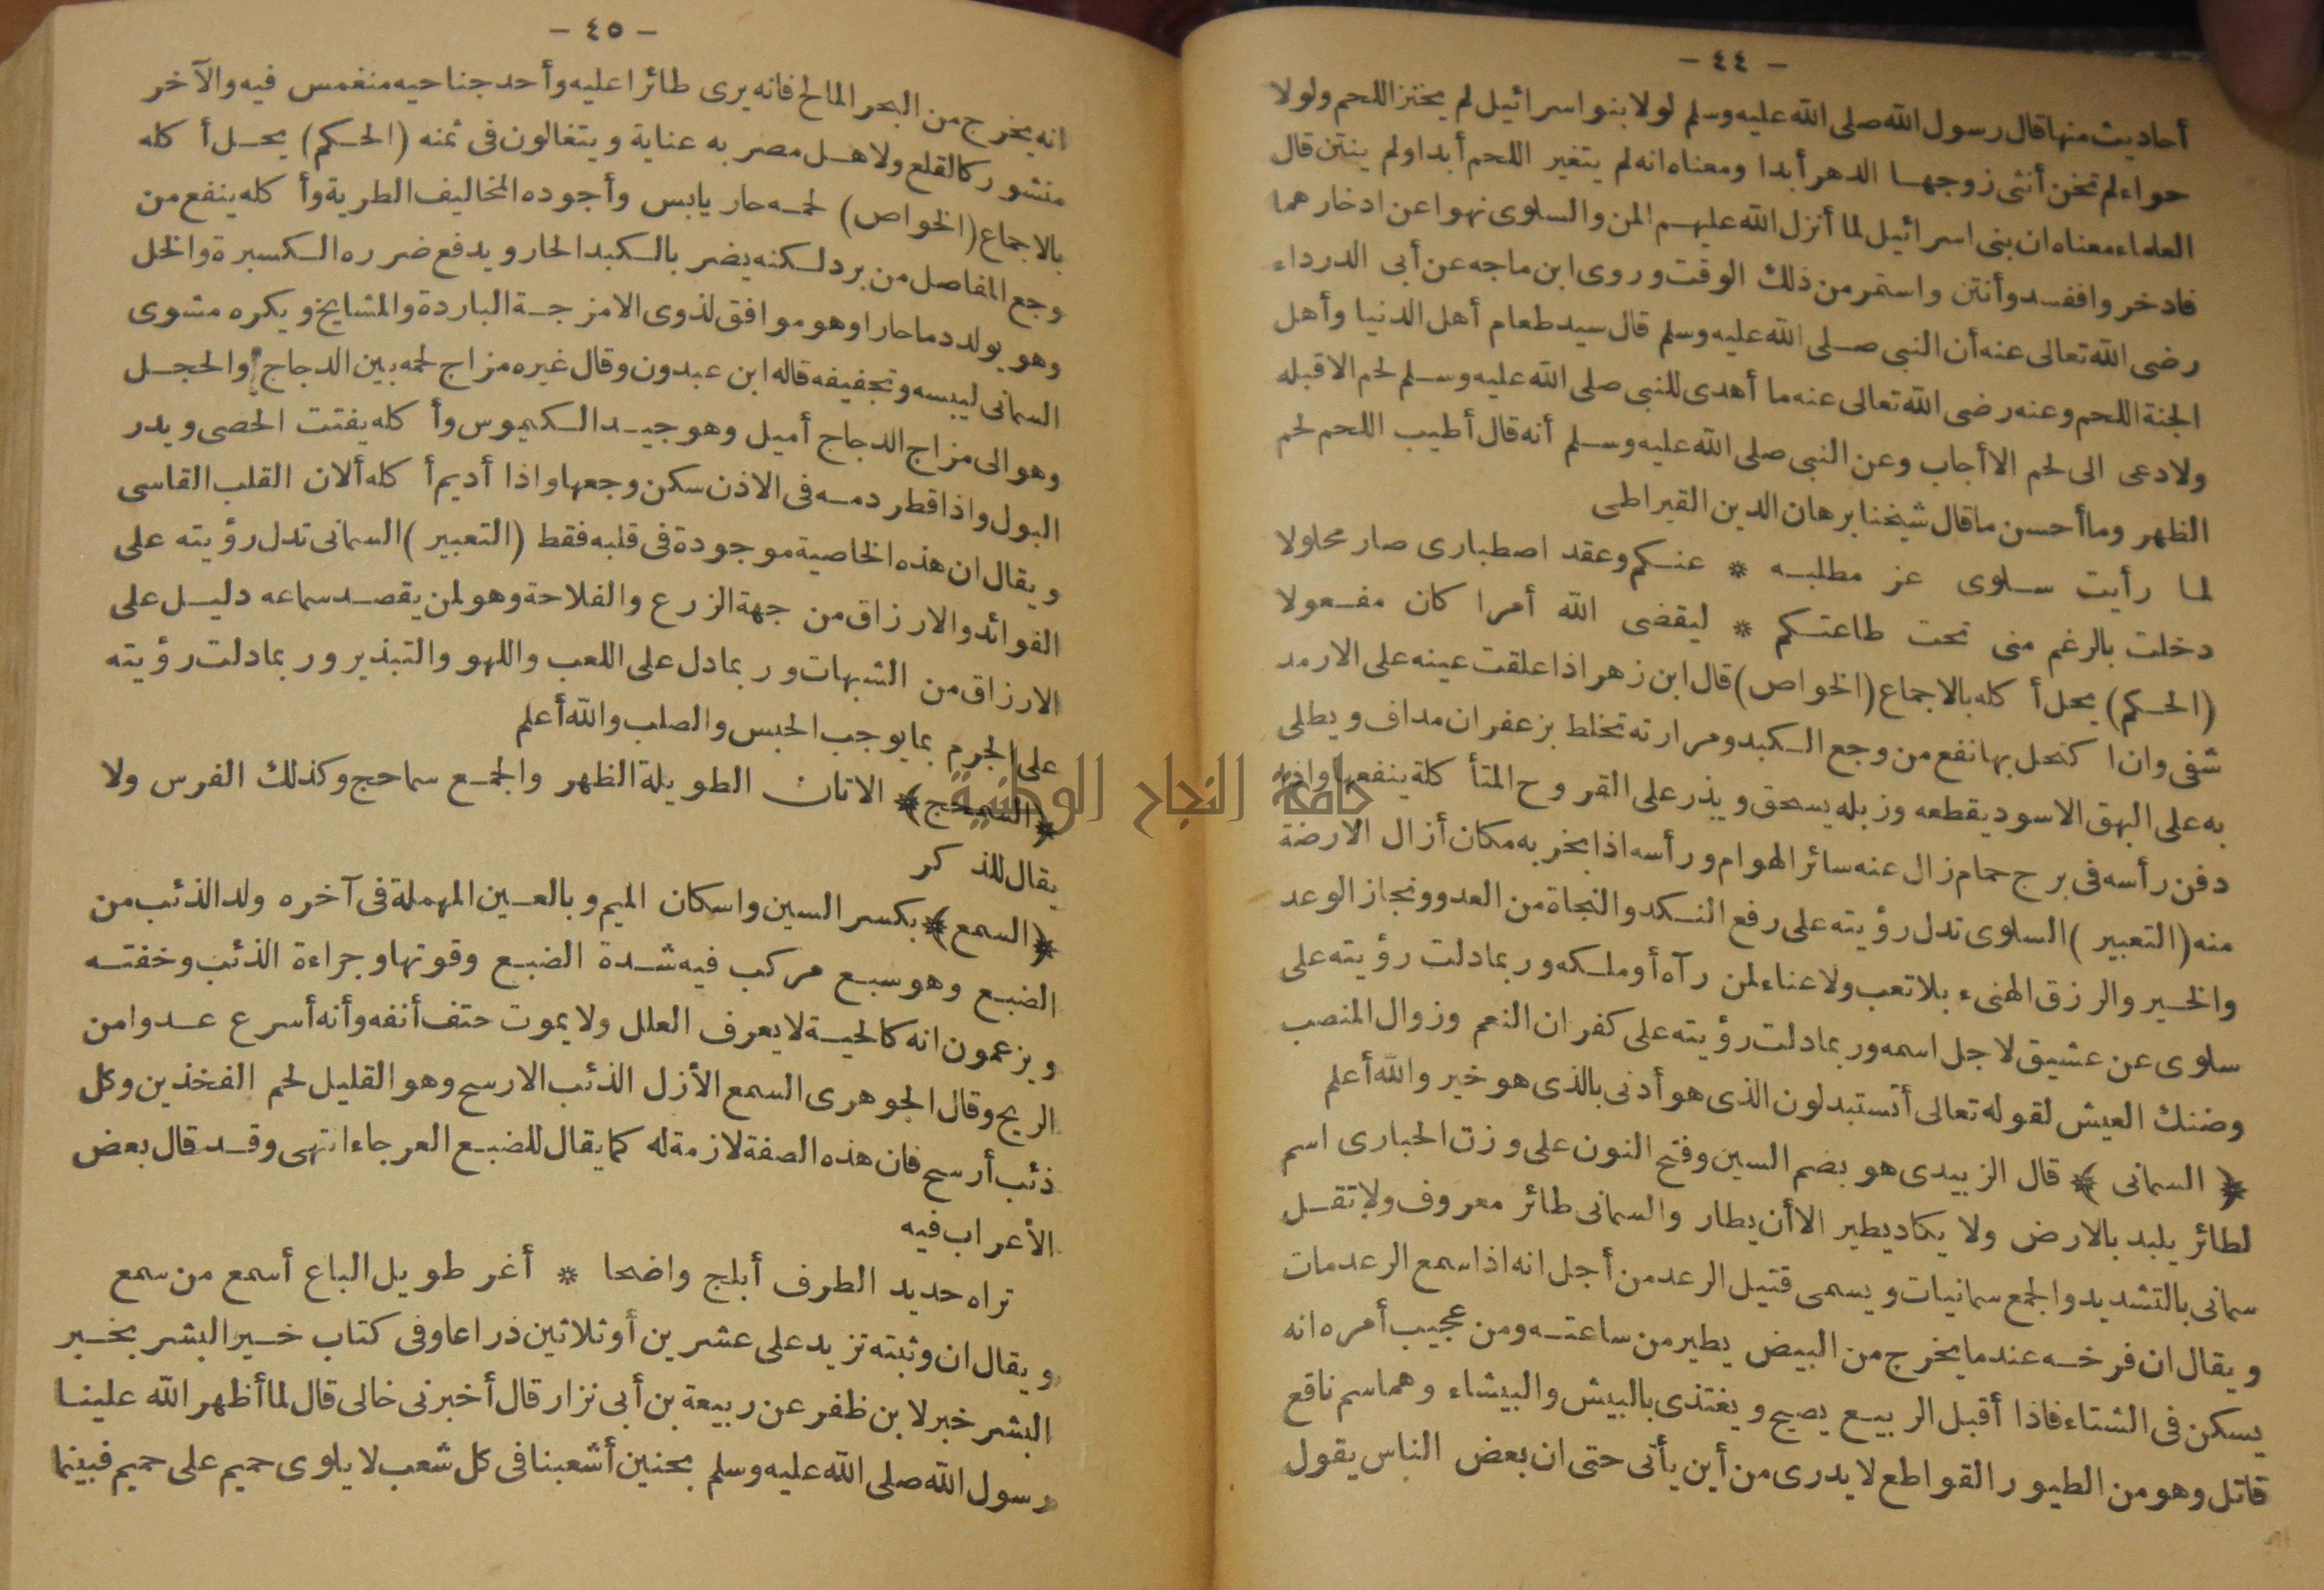 - ٤٤ -
أحاديث منها قال رسول الله صلى الله عليه وسلم لولا بنو اسرائيل لم يخنز اللحم ولولا
حواء لم تخن أنثى زوجها الدهر أبدا ومعناه انه لم يتغير اللحم أبدا ولم ينتن قال
العلماء معناه ان بنى اسرائيل لما أنزل الله عليهم المن والسلوى نهوا عن ادخارهما
فادخروا ففسد وأنتن واستمر من ذلك الوقت وروى ابن ماجه عن أبى الدرداء
رضى الله تعالى عنه أن النبى صلى الله عليه وسلم قال سيد طعام أهل الدنيا وأهل
الجنة اللحم وعنه رضى الله تعالى عنه ما أهدى للنبى صلى الله عليه وسلم لحم الا قبله
ولا دعى الى لحم الا أجاب وعن النبى صلى الله عليه وسلم أنه قال أطيب اللحم لحم
الظهر وما أحسن ما قال شيخنا برهان الدين القيراطى
لما رأيت سلوى عز مطلبه * عنكم وعقد اصطبارى صار محلولا
دخلت بالرغم منى تحت طاعتكم * ليقضى الله أمرا كان مفعولا
(الحكم) يحل أكله بالاجماع (الخواص) قال ابن زهر اذا علقت عينه على الارمد
شفى وان اكتحل بها نفع من وجع الكبد ومرارته تخلط بزعفران مداف ويطلى
به على البهق الاسود يقطعه وزبله يسحق ويذر على القروح المتأكلة ينفعها واذا
دفن رأسه فى برج حمام زال عنه سائر الهوام ورأسه اذا بخر به مكان أزال الارضة
منه (التعبير) السلوى تدل رؤيته على رفع النكد والنجاة من العدو ونجاز الوعد
والخير والرزق الهنىء بلا تعب ولا عناء لمن رآه أو ملكه وربما دلت رؤيته على
سلوى عن عشيق لاجل اسمه وربما دلت رؤيته على كفران النعم وزوال المنصب
وضنك العيش لقوله تعالى أتستبدلون الذى هو أدنى بالذى هو خير والله أعلم
﴿ السمانى ﴾ قال الزبيدى هو بضم السين وفتح النون على وزن الحبارى اسم
لطائر يلبد بالارض ولا يكاد يطير الا أن يطار والسمانى طائر معروف ولا تقل
سمانى بالتشديد والجمع سمانيات ويسمى قتيل الرعد من أجل انه اذا سمع الرعد مات
ويقال ان فرخه عند ما يخرج من البيض يطير من ساعته ومن عجيب أمره انه
يسكن فى الشتاء فاذا أقبل الربيع يصيح ويغتذى بالبيش والبيشاء وهما سم ناقع
قاتل وهو من الطيور القواطع لا يدرى من أين يأتى حتى ان بعض الناس يقول
- ٤٥ -
انه يخرج من البحر المالح فانه يرى طائرا عليه وأحد جناحيه منغمس فيه والآخر
منشور كالقلع ولاهل مصر به عناية ويتغالون فى ثمنه (الحكم) يحل أكله
بالاجماع (الخواص) لحمه حار يابس وأجوده المخاليف الطرية وأكله ينفع من
وجع المفاصل من برد لكنه يضر بالكبد الحار ويدفع ضرره الكسبرة والخل
وهو يولد دما حارا وهو موافق لذوى الامزجة الباردة والمشايخ ويكره مشوى
السمانى ليبسه وتجفيفه قاله ابن عبدون وقال غيره مزاج لحمه بين الدجاج والحجل
وهو الى مزاج الدجاج أميل وهو جيد الكيموس وأكله يفتت الحصى ويدر
البول واذا قطر دمه فى الاذن سكن وجعها واذا أديم أكله ألان القلب القاسى
ويقال ان هذه الخاصية موجودة فى قلبه فقط (التعبير) السمانى تدل رؤيته على
الفوائد والارزاق من جهة الزرع والفلاحة وهو لمن يقصد سماعه دليل على
الارزاق من الشبهات وربما دل على اللعب واللهو والتبذير وربما دلت رؤيته
على الجرم بما يوجب الحبس والصلب والله أعلم
﴿السمحج﴾ الاتان الطويلة الظهر والجمع سماحج وكذلك الفرس ولا
يقال للذكر
﴿السمع﴾ بكسر السين واسكان الميم وبالعين المهملة فى آخره ولد الذئب من
الضبع وهو سبع مركب فيه شدة الضبع وقوتها وجراءة الذئب وخفته
ويزعمون انه كالحية لا يعرف العلل ولا يموت حتف أنفه وأنه أسرع عدوا من
الريح وقال الجوهرى السمع الأزل الذئب الارسح وهو القليل لحم الفخذين وكل
ذئب أرسح فان هذه الصفة لازمة له كما يقال للضبع العرجاء انتهى وقد قال بعض
الأعراب فيه
تراه حديد الطرف أبلج واضحا * أغر طويل الباع أسمع من سمع
ويقال ان وثبته تزيد على عشرين أو ثلاثين ذراعا وفى كتاب خير البشر بخير
البشر خبر لابن ظفر عن ربيعة بن أبى نزار قال أخبرنى خالى قال لما أظهر الله علينا
رسول الله صلى الله عليه وسلم بحنين أشعبنا فى كل شعب لا يلوى حميم على حميم فبينما
جامعة النجاح الوطنية